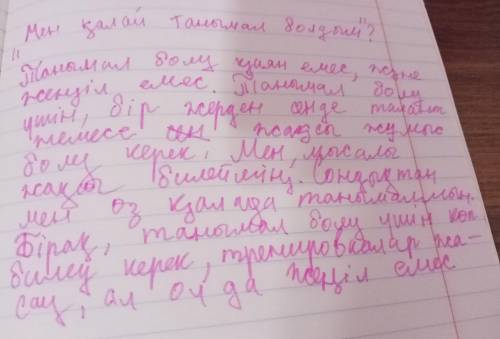 "Мен қалай танымал болдым"?
"Танымал болу қиян емес, және
жеңіл емес. Танымал болу
үшін, бір жерден сенде талант
немесе жақсы жұмыс
болу керек. Мен, мысалы
жақсы билеймің. Сондықтан
мен өз қалада танымалмын.
Бірақ, танымал болу үшін көп
билеу керек, тренировкалар жа-
сау, ал ол да жеңіл емес